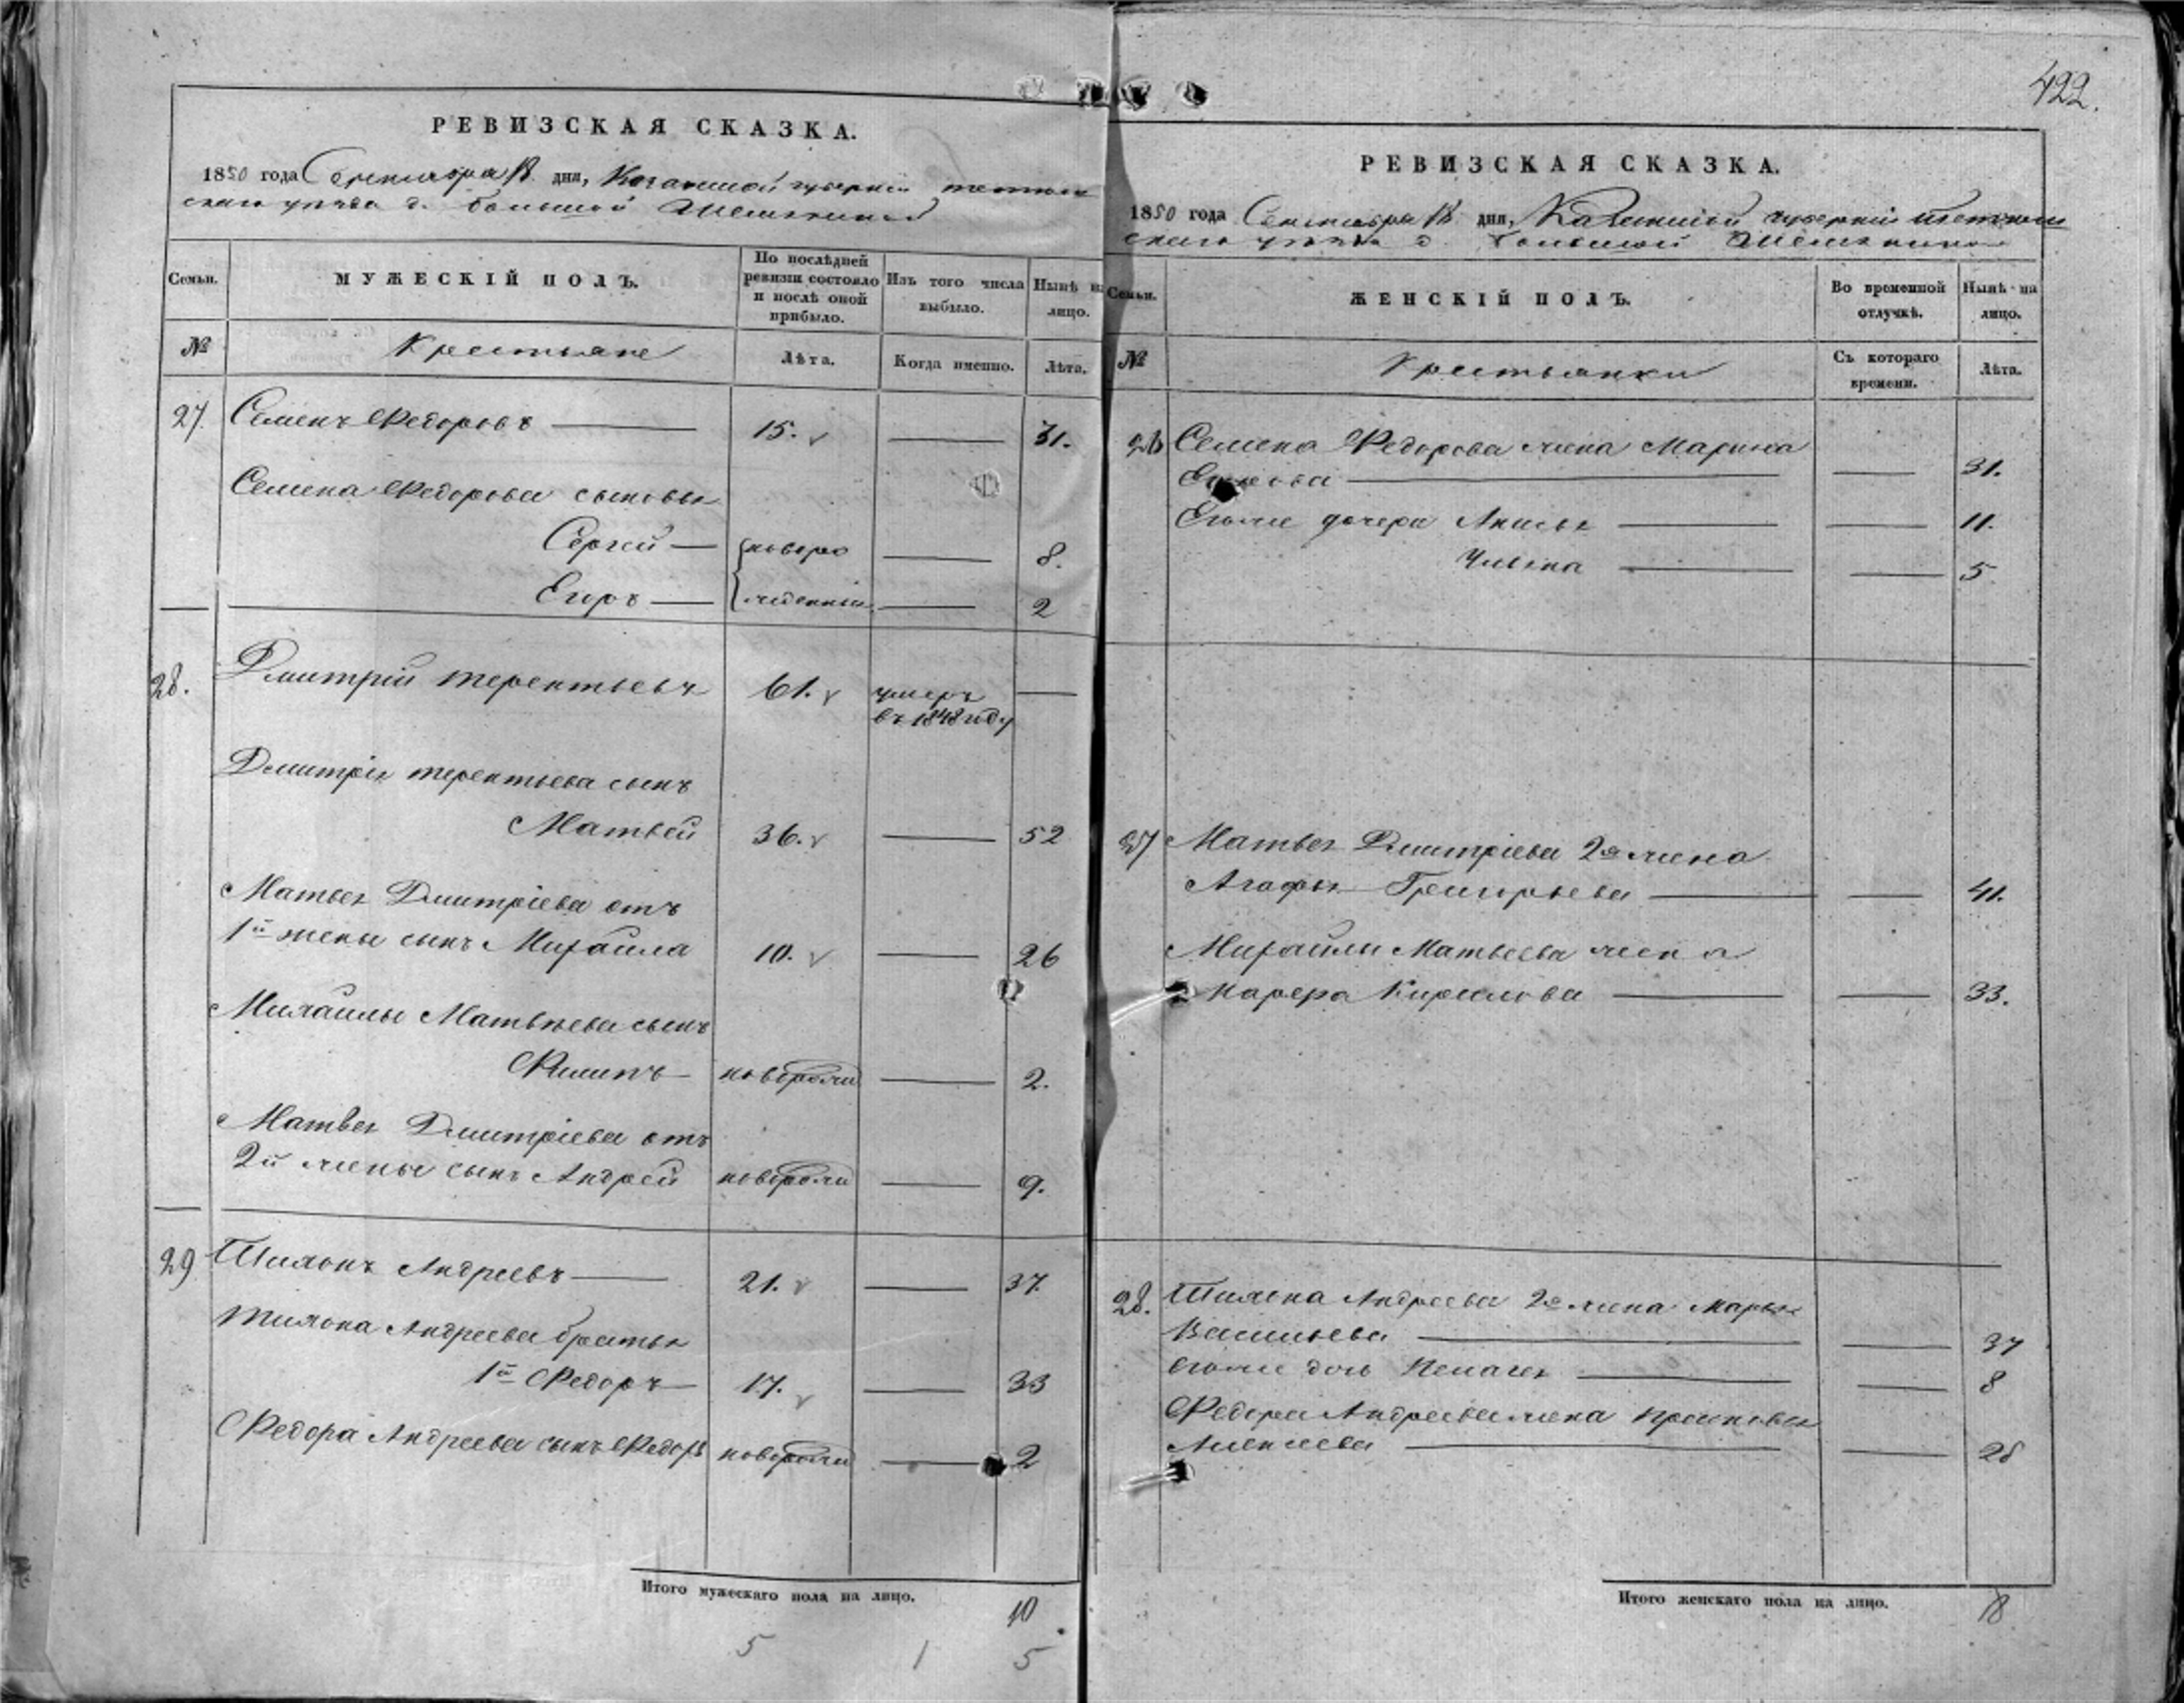 422.
РЕВИЗСКАЯ СКАЗКА.
1850 года Сентября 18 дня, Казанской губернии тетюш
скаго уезда д. большой
Семьи. МУЖЕСКІЙ ПОЛЪ. По послѣдней ревизіи состояло и послѣ оной прибыло. Изъ того числа выбыло. Нынѣ на лицо.
№ Крестьяне Лѣта. Когда именно. Лѣта.
27. Семенъ Федоровъ — 15. — 31.
Семена Федорова сыновья
Сергей — новоро — 8.
Егоръ — жденныи — 2
28. Дмитрій терентьевъ 61. умеръ —
въ 1848 году
Дмитрія терентьева сынъ
Матвей 36. — 52
Матвея Дмитріева отъ
1й жены сынъ Михайла 10. — 26
Михайлы Матвѣева сынъ
Филипъ новорожд — 2.
Матвея Дмитріева отъ
2й жены сынъ Андрей новорожд — 9.
29 Тихонъ Андреевъ — 21. — 37.
Тихона Андреева братья
1й Федоръ 17. — 33
Федора Андреева сынъ Федоръ новорожд — 2
Итого мужескаго пола на лицо.
10
5 1 5
РЕВИЗСКАЯ СКАЗКА.
1850 года Сентября 18 дня, Казанской губерніи тетюш
скаго уезда д. большой
Семьи. ЖЕНСКІЙ ПОЛЪ. Во временной отлучкѣ. Нынѣ на лицо.
№ Крестьянки Съ котораго времени. Лѣта.
26 Семена Федорова жена Марина
— — 31.
Егоже дочери Анисья — — 11.
— — 5
27 Матвея Дмитріева 2я жена
Агафья Григорьева — — 41.
Михайлы Матвеева жена
Кирилова — — 33.
28. Тихона Андреева 2я жена Марья
Васильева — — 37
Егоже дочь Пелагея — — 8
Федора Андреева жена Прасковья
Алексеева — — 28
Итого женскаго пола на лицо. 8